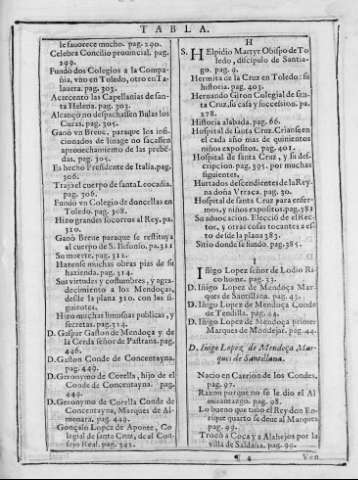 TABLA.
le fauorece mucho. pag. 290.
Celebra Concilio prouincial. pag.
299.
Fundo dos Colegios a la Compañia,
vno en Toledo, otro en Talauera.
pag. 303.
Acrecento las Capellanias de santa
Helena. pag. 303.
Alcançò no despachassen Bulas los
Curas. pag. 305.
Ganò vn Breue, paraque los inficionados
de linage no sacassen
aprouechamiento de las prebedas,
pag. 305.
Es hecho Presidente de Italia. pag.
306.
Trajo el cuerpo de santa Leocadia.
pag. 306.
Fundo vn Colegio de doncellas en
Toledo. pag. 308.
Hizo grandes socorros al Rey. pa.
310.
Ganò Breue paraque se restituya
al cuerpo de S. Ilefonso. pa. 311
Su muerte. pag. 312.
Hazense muchas obras pias de su
hazienda. pag. 314.
Sus virtudes y costumbres, y agradecimiento
a los Mendoças,
desde la plana 320. con las siguientes.
Hizo muchas limosnas publicas, y
secretas. pag. 324.
D. Gaspar Gaston de Mendoça y de
la Cerda señor de Pastrana. pag.
446.
D. Gaston Conde de Concentayna.
pag. 449.
D. Geronymo de Corella, hijo de el
Conde de Concentayna. pag.
449.
D. Geronymo de Corella Conde de
Concentayna, Marques de Almenara,
pag. 449.
Gonçalo Lopez de Aponte, Colegial
de santa Cruz, de al Consejo
Real. pag. 392.
H
S. Helpidio Martyr Obispo de Toledo,
discipulo de Santiago.
pag. 9.
Hermita de la Cruz en Toledo: su
historia. pag. 403.
Hernando Giron Colegial de santa
Cruz, su casa y succession. pa.
378.
Historia alabada. pag. 66.
Hospital de santa Cruz. Crianse en
el cada año mas de quinientos
niños expositos. pag. 401.
Hospital de santa Cruz, y su descripcion.
pag. 395. por muchas
siguientes.
Hurtados descendientes de la Reyna
doña Vrraca. pag. 30.
Hospital de santa Cruz para enfermos,
y niños expositos. pag. 381
Su aduocacion. Eleccio de el Rector,
y otras cosas tocantes a esto
desde la plana 383.
Sitio donde se fundo. pag. 385.
I
Iñigo Lopez señor de Lodio Ricohome.
pag. 33.
D. Iñigo Lopez de Mendoça Marques
de Santillana. pag. 43.
D. Iñigo Lopez de Mendoça Conde
de Tendilla. pag. 44.
D. Iñigo Lopez de Mendoça primer
Marques de Mondejar. pag. 44.
D. Iñigo Lopez de Mendoça Marques
de Santillana.
Nacio en Carrion de los Condes.
pag. 97.
Razon porque no se le dio el Almirantazgo.
pag. 98.
Lo bueno que tuuo el Rey don Enrique
quarto se deue al Marques
pag. 99.
Trocò a Coca y a Alahejos por la
villa de Saldaña. pag. 99.
¶ 4
Ven